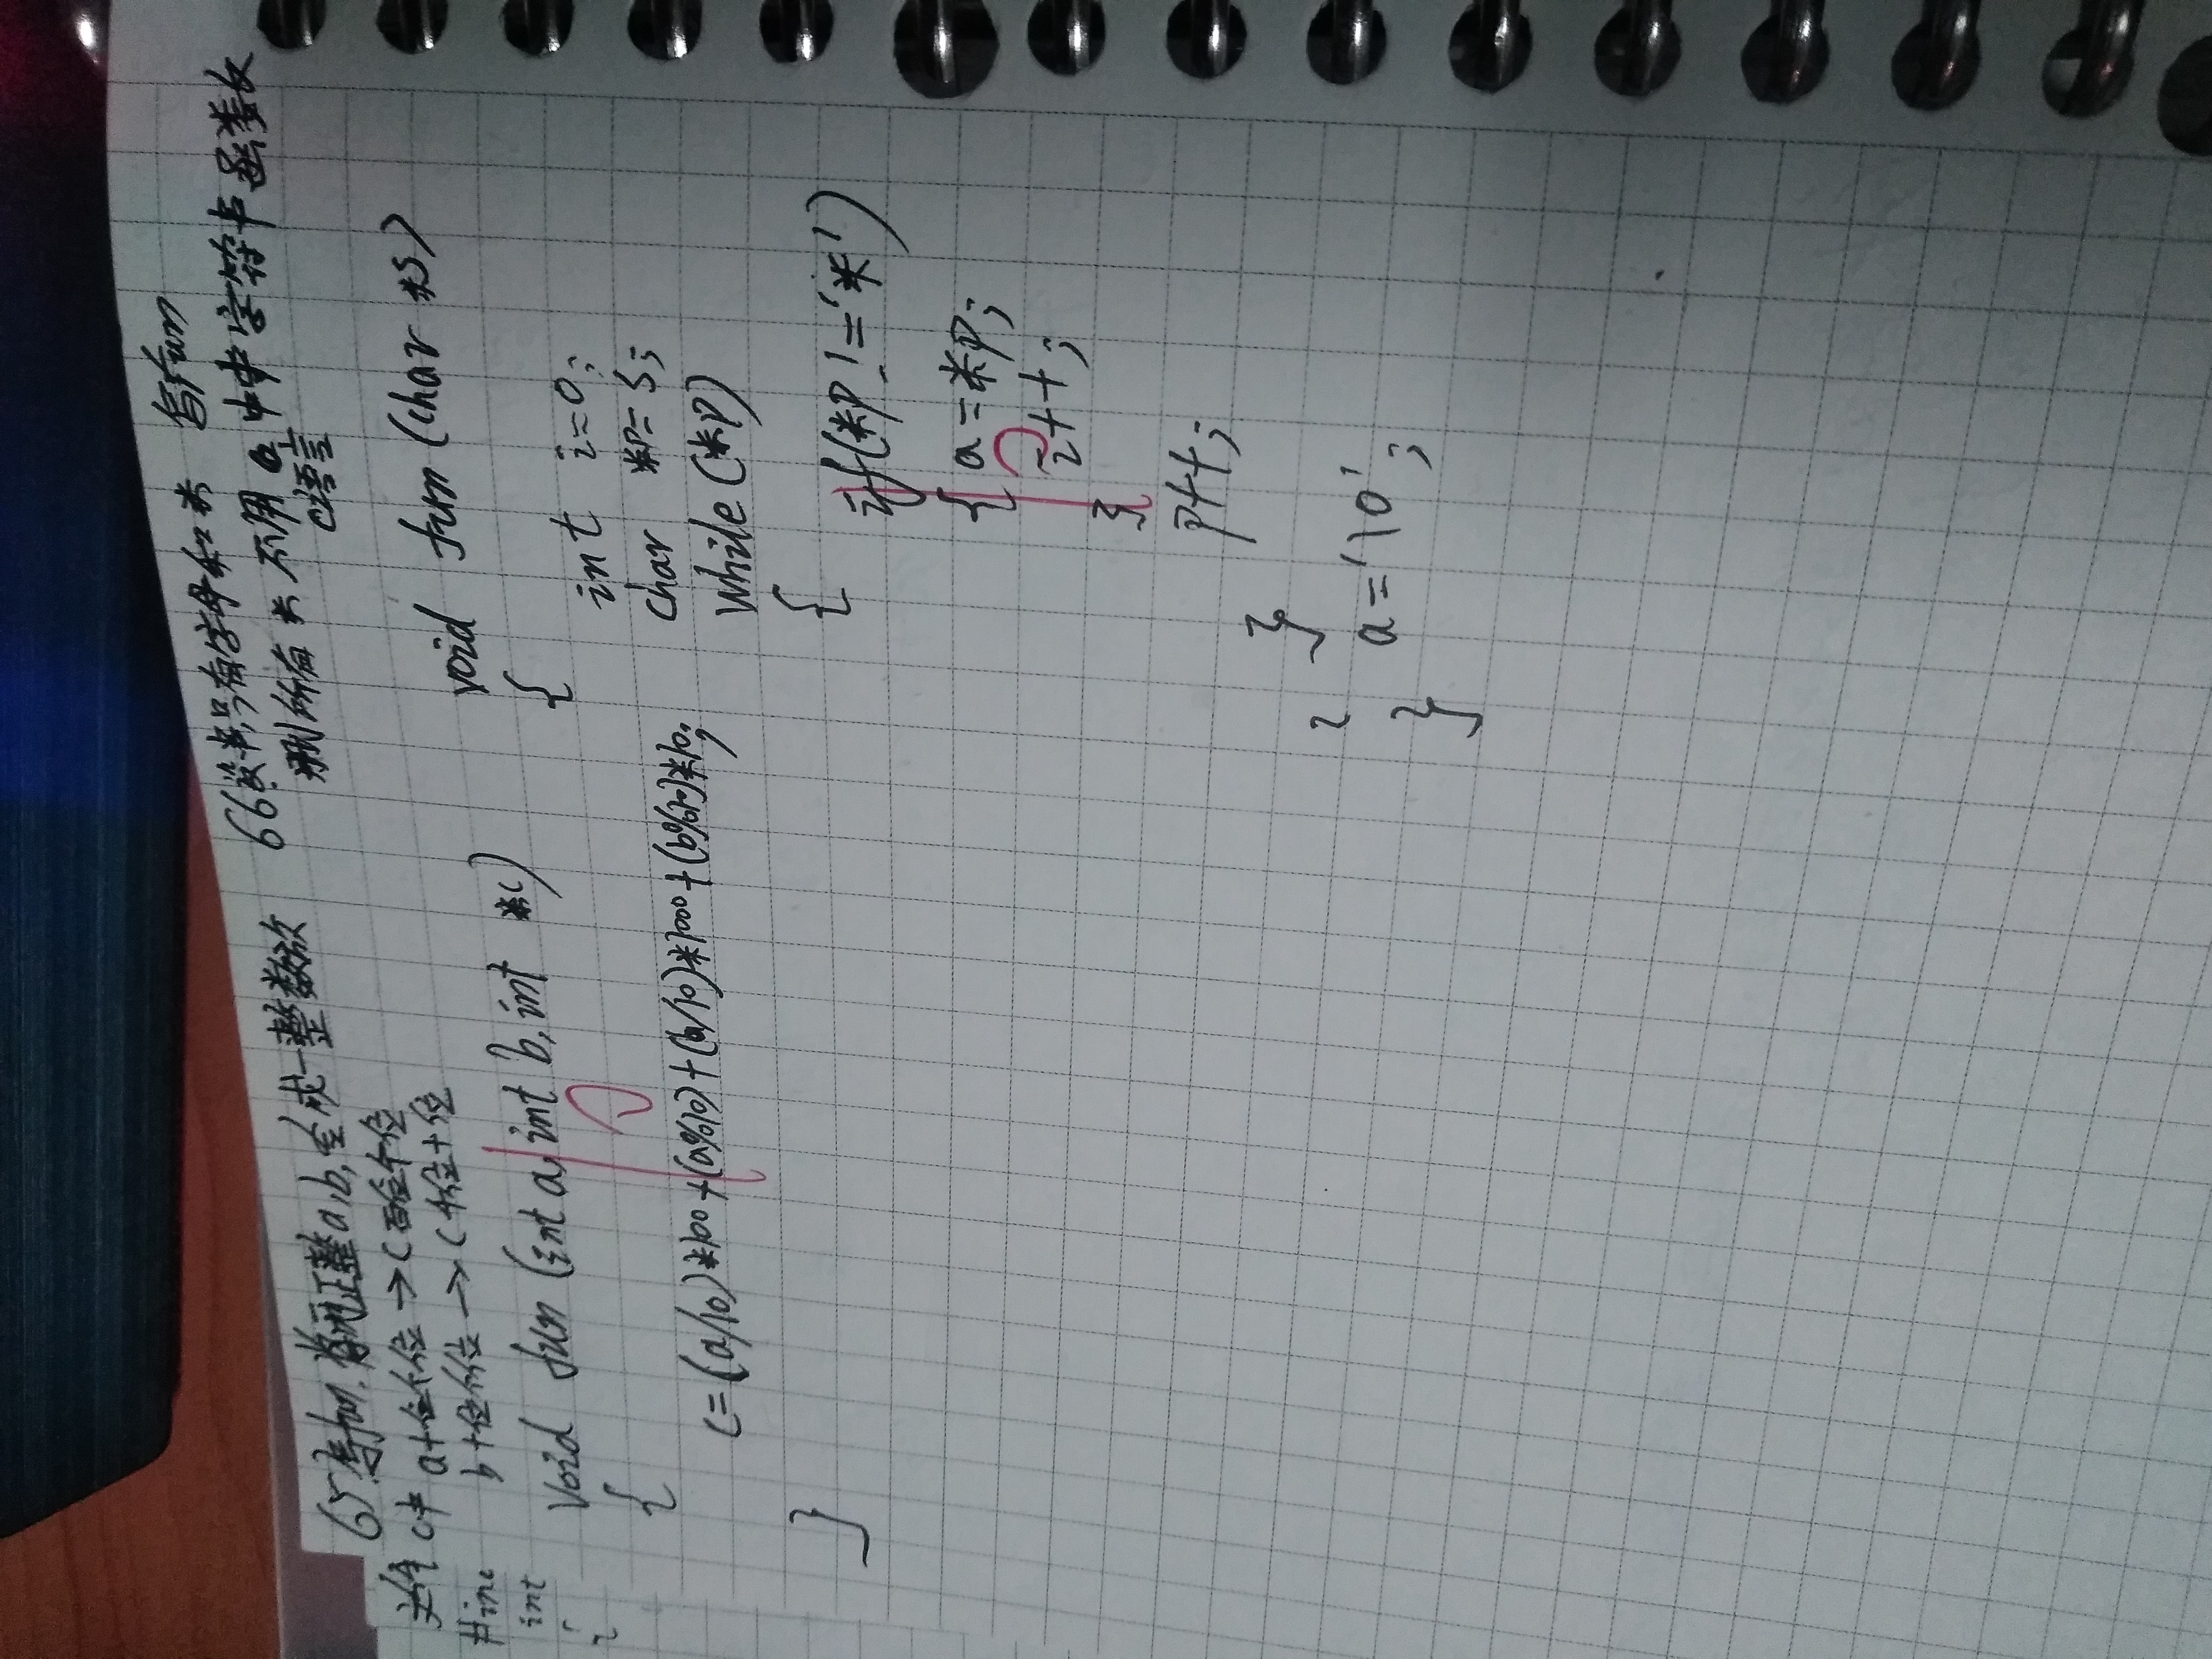 65写fun.将两正整a,b,合成一整数放
并存c中 a十位个位→C百位个位
b十位个位→C千位十位
#inc
int
void fun (int a, int b, int *c)
{
c=(a/10)*100+(a%10)+(b/10)*1000+(b%10)*10;
}
66.设字串只有字母和*
写fun
删所有*
不用
C语言
中字符串函数
void fun (char *s)
{
int i=0;
char *p=s;
while (*p)
{
if(*p!='*')
{ a=*p;
i++;
}
p++;
}
a='\0';
}